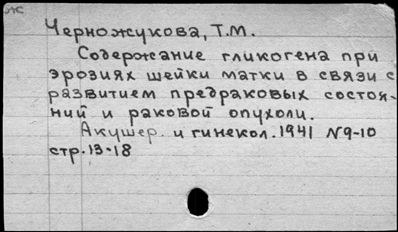 ж
Черножукова, Т.М.
Содержание гликогена при
эрозиях шейки матки в связи с
развитием предраковых состоя-
ний и раковой опухоли.
Акушер. и гинекол. 1941 №9-10
стр. 13-18